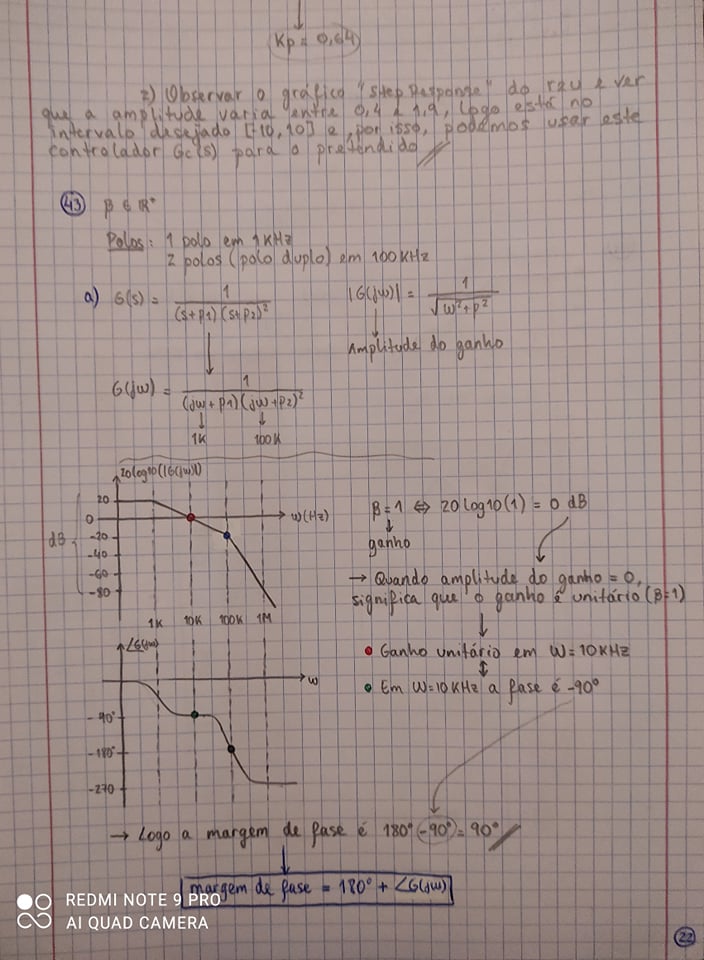 Kp = 0,64
2) Observar o gráfico "Step Response" do rzu e ver
que a amplitude varia entre 0,4 e 1,9, logo está no
intervalo desejado [-10,10] e, por isso, podemos usar este
controlador Gc(s) para o pretendido
43 β ∈ ℝ⁺
Polos: 1 polo em 1KHz
2 polos (polo duplo) em 100KHz
a) G(s) = 1 / (s+p1)(s+p2)² |G(jω)| = 1 / √ω²+p²
Amplitude do ganho
G(jω) = 1 / (jω+p1)(jω+p2)²
1K 100K
20log10(|G(jω)|)
20
0 ω(Hz)
-20
dB
-40
-60
-80
1K 10K 100K 1M
β=1 ⇔ 20log10(1) = 0 dB
ganho
→ Quando amplitude do ganho = 0,
significa que o ganho é unitário (β=1)
• Ganho unitário em ω=10KHz
• Em ω=10KHz a fase é -90°
∠G(jω)
ω
-90°
-180°
-270
→ Logo a margem de fase é 180°-90° = 90°
margem de fase = 180° + ∠G(jω)
REDMI NOTE 9 PRO
AI QUAD CAMERA
22